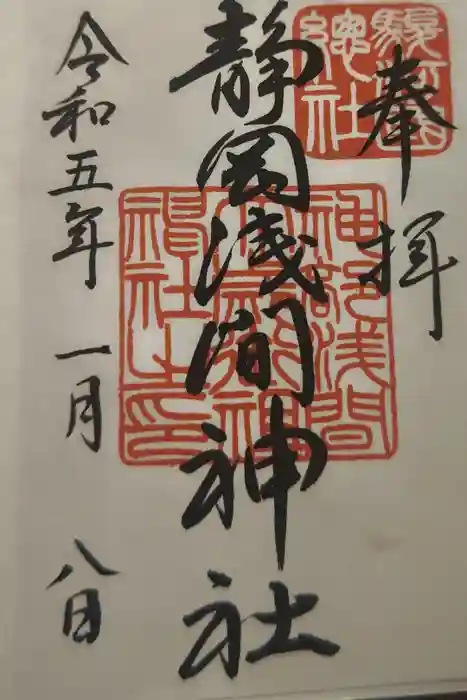 奉拝
駿河國
總社
静岡浅間神社
神部浅間
令和五年一月八日